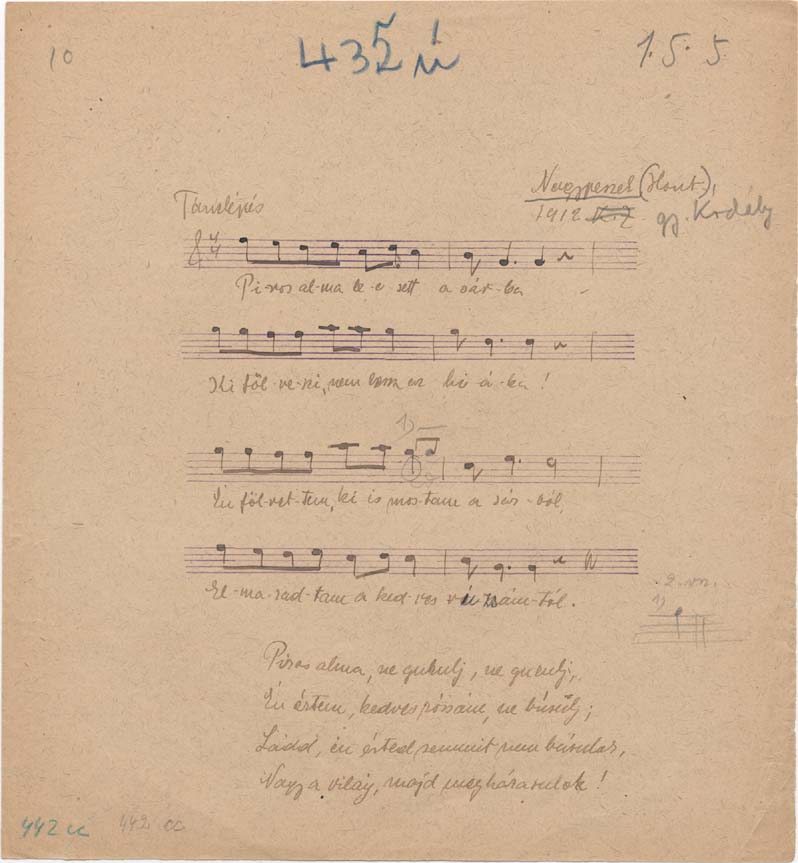 10
435
1. 5. 5
Tánclépés
(Hont),
1912 gy. Kodály
Pi-ros al-ma le-e-sett a sár-ba
Ki föl-ve-szi, nem az hi-á-ba!
1)
Én föl-vet-tem, ki is mos-tam a sár-ból,
El-ma-rad-tam a ked-ves rózsám-tól.
1)
Piros alma, ne gurulj, ne gurulj,
Én értem, kedves rózsám, ne búsúlj;
Ládd, én érted semmit nem búsulok,
Nagy a világ, majd megházasulok!
442
442